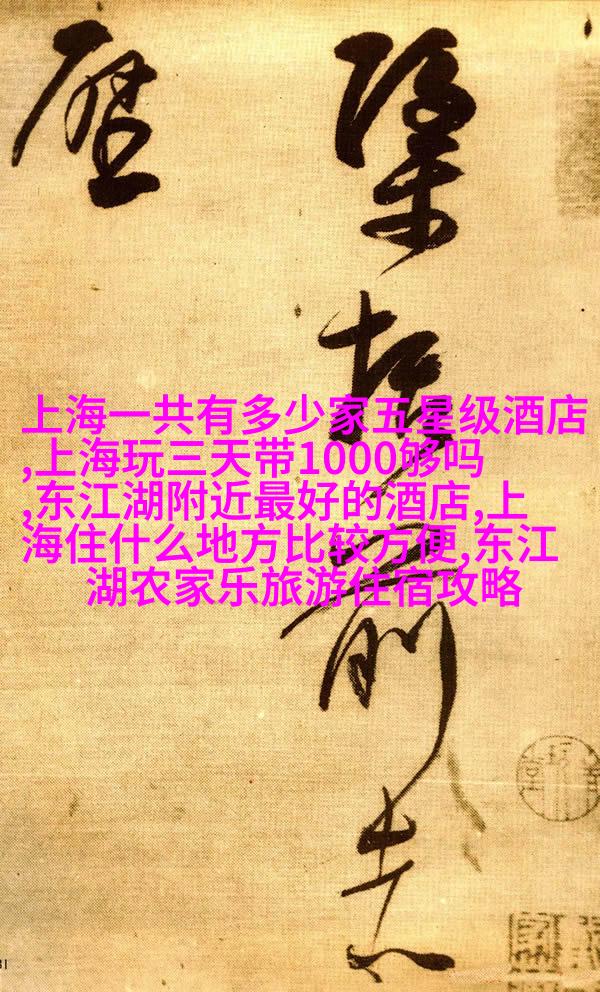 上海一共有多少家五星级酒店
,上海玩三天带1000够吗
,东江湖附近最好的酒店,上
海住什么地方比较方便,东江
湖农家乐旅游住宿攻略
前志
歷